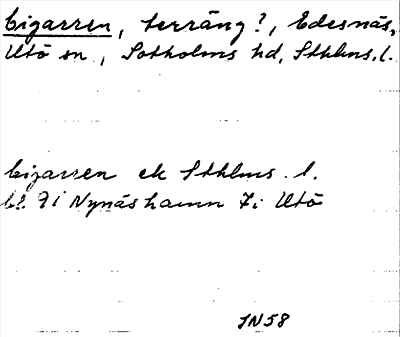 Cigarren, terräng?, Edesnäs,
Utö sn, Sotholms hd, Sthlms. l.
Cigarren ek Sthlms. l.
bl. 7i Nynäshamn 7i Utö
IN58